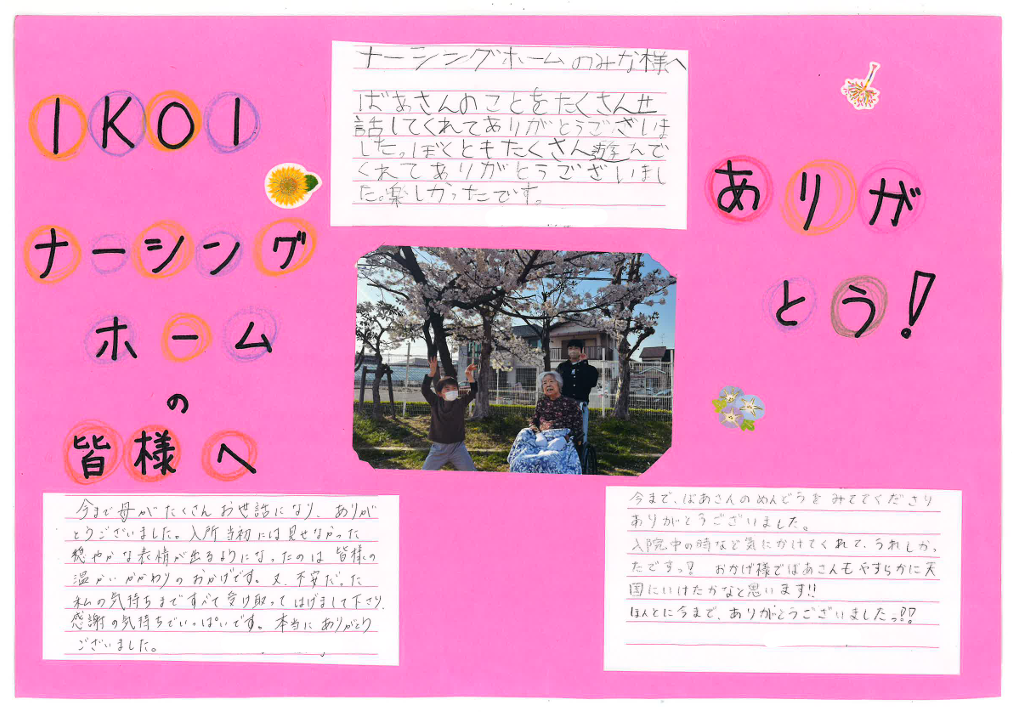 IKOI
ナーシング
ホーム
の
皆様へ
ナーシングホームのみな様へ
ばあさんのことをたくさん世
話してくれてありがとうございま
した。ぼくともたくさん遊んで
くれてありがとうございまし
た。楽しかったです。
ありが
とう!
今まで母がたくさんお世話になり、ありが
とうございました。入所当初には見せなかった
穏やかな表情が出るようになったのは皆様の
温かいかかわりのおかげです。又、不安だった
私の気持ちまですべて受け取ってはげまして下さり、
感謝の気持ちでいっぱいです。本当にありがとう
ございました。
今まで、ばあさんのめんどうをみててくださり
ありがとうございました。
入院中の時など気にかけてくれて、うれしかっ
たですっ!! おかげ様でばあさんもやすらかに天
国にいけたかなと思います!!
ほんとに今まで、ありがとうございましたっ!!